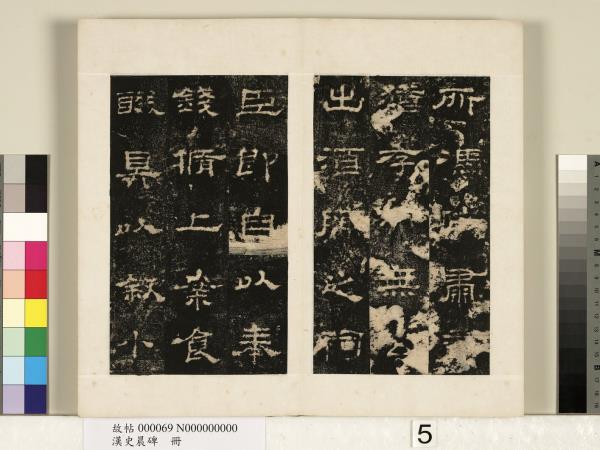 所馮依肅
猶存而無公
出酒脯之祠
臣即自以奉
錢脩上案食
醊具以叙小
故帖 000069 N000000000
漢史晨碑 冊
5